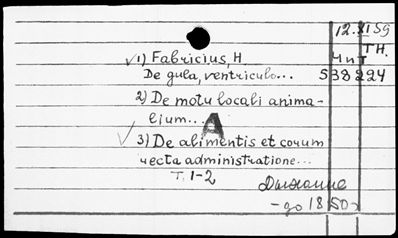 12.XI 59
✓1) Fabricius, H Чит TH.
De gula, ventriculo... 538224
2) De motu locali anima-
lium...
A
✓ 3) De alimentis et eorum
recta administratione...
T. 1-2
- до 1850